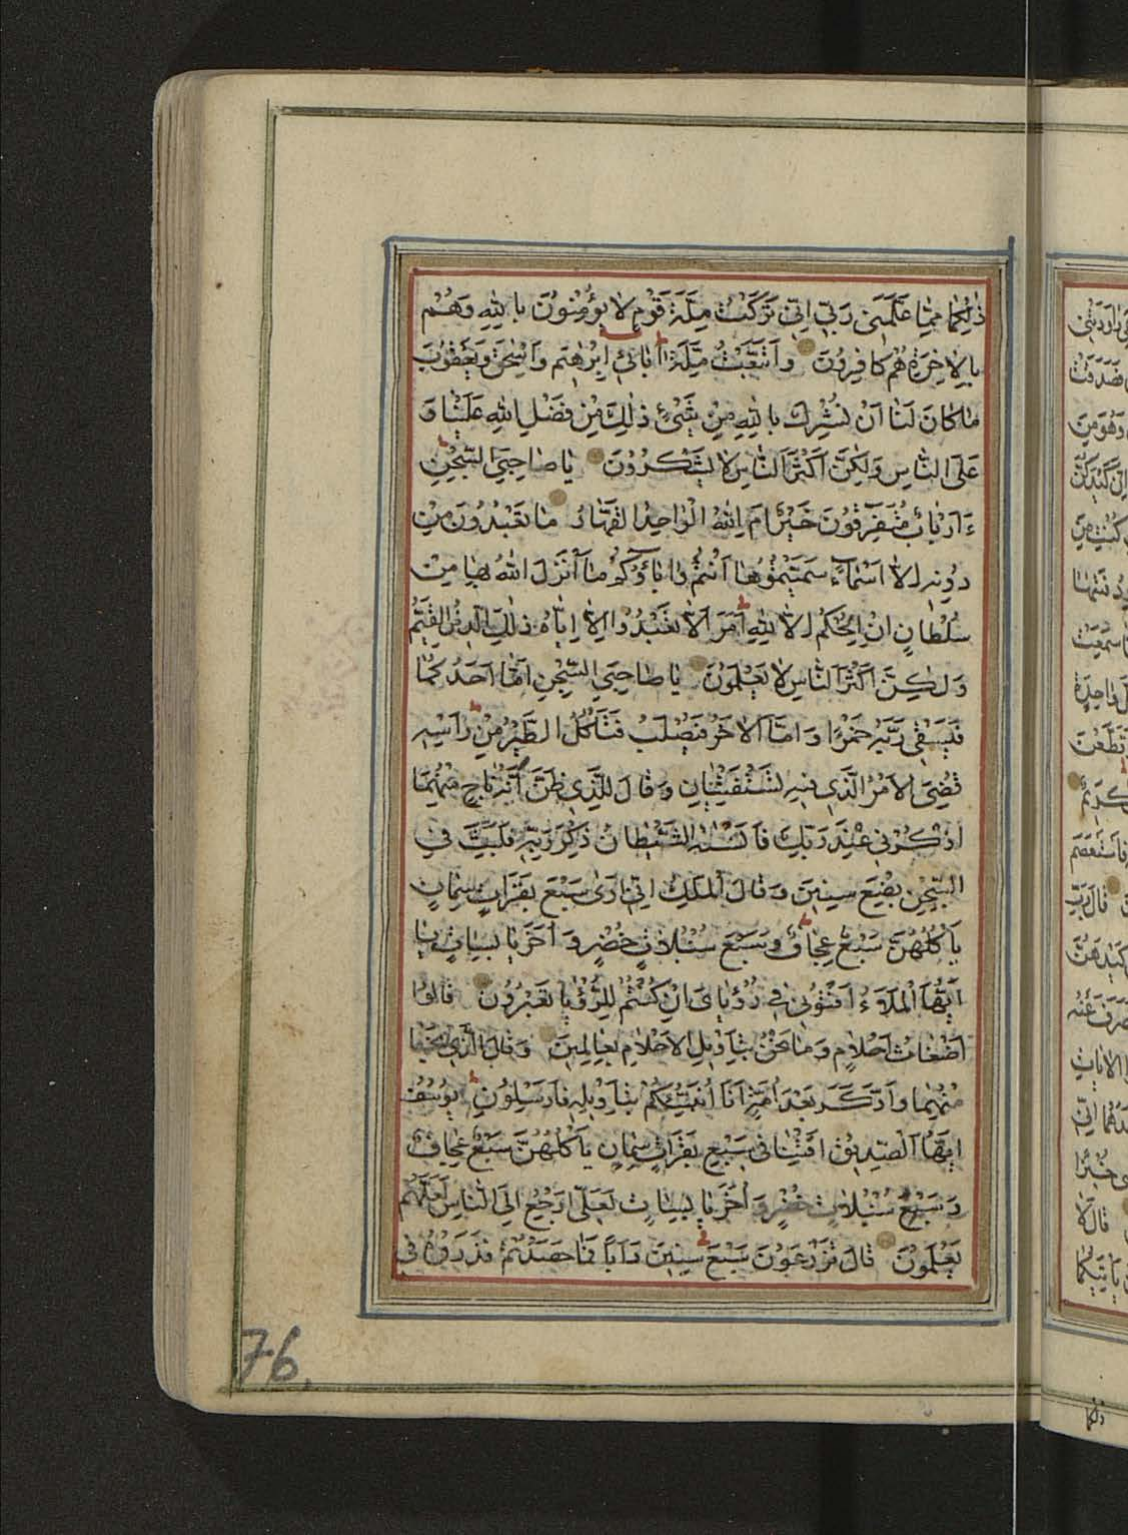 ذٰلِكُمَا مِمَّا عَلَّمَنِي رَبِّي اِنِّي تَرَكْتُ مِلَّةَ قَوْمٍ لَا يُؤْمِنُونَ بِاللّٰهِ وَهُمْ
بِالْاٰخِرَةِ هُمْ كَافِرُونَ وَاتَّبَعْتُ مِلَّةَ اٰبَائِي اِبْرٰهِيمَ وَاِسْحٰقَ وَيَعْقُوبَ
مَا كَانَ لَنَا اَنْ نُشْرِكَ بِاللّٰهِ مِنْ شَيْءٍ ذٰلِكَ مِنْ فَضْلِ اللّٰهِ عَلَيْنَا وَ
عَلَى النَّاسِ وَلٰكِنَّ اَكْثَرَ النَّاسِ لَا يَشْكُرُونَ يَا صَاحِبَيِ السِّجْنِ
ءَاَرْبَابٌ مُتَفَرِّقُونَ خَيْرٌ اَمِ اللّٰهُ الْوَاحِدُ الْقَهَّارُ مَا تَعْبُدُونَ مِنْ
دُونِهِ اِلَّا اَسْمَآءً سَمَّيْتُمُوهَا اَنْتُمْ وَاٰبَآؤُكُمْ مَا اَنْزَلَ اللّٰهُ بِهَا مِنْ
سُلْطَانٍ اِنِ الْحُكْمُ اِلَّا لِلّٰهِ اَمَرَ اَلَّا تَعْبُدُوا اِلَّا اِيَّاهُ ذٰلِكَ الدِّينُ الْقَيِّمُ
وَلٰكِنَّ اَكْثَرَ النَّاسِ لَا يَعْلَمُونَ يَا صَاحِبَيِ السِّجْنِ اَمَّا اَحَدُكُمَا
فَيَسْقِي رَبَّهُ خَمْرًا وَاَمَّا الْاٰخَرُ فَيُصْلَبُ فَتَأْكُلُ الطَّيْرُ مِنْ رَأْسِهِ
قُضِيَ الْاَمْرُ الَّذِي فِيهِ تَسْتَفْتِيَانِ وَقَالَ لِلَّذِي ظَنَّ اَنَّهُ نَاجٍ مِنْهُمَا
اذْكُرْنِي عِنْدَ رَبِّكَ فَاَنْسٰيهُ الشَّيْطَانُ ذِكْرَ رَبِّهِ فَلَبِثَ فِي
السِّجْنِ بِضْعَ سِنِينَ وَقَالَ الْمَلِكُ اِنِّي اَرٰى سَبْعَ بَقَرَاتٍ سِمَانٍ
يَأْكُلُهُنَّ سَبْعٌ عِجَافٌ وَسَبْعَ سُنْبُلَاتٍ خُضْرٍ وَاُخَرَ يَابِسَاتٍ يَا
اَيُّهَا الْمَلَاُ اَفْتُونِي فِي رُؤْيَايَ اِنْ كُنْتُمْ لِلرُّؤْيَا تَعْبُرُونَ قَالُوا
اَضْغَاثُ اَحْلَامٍ وَمَا نَحْنُ بِتَأْوِيلِ الْاَحْلَامِ بِعَالِمِينَ وَقَالَ الَّذِي نَجَا
مِنْهُمَا وَادَّكَرَ بَعْدَ اُمَّةٍ اَنَا اُنَبِّئُكُمْ بِتَأْوِيلِهِ فَاَرْسِلُونِ يُوسُفُ
اَيُّهَا الصِّدِّيقُ اَفْتِنَا فِي سَبْعِ بَقَرَاتٍ سِمَانٍ يَأْكُلُهُنَّ سَبْعٌ عِجَافٌ
وَسَبْعِ سُنْبُلَاتٍ خُضْرٍ وَاُخَرَ يَابِسَاتٍ لَعَلِّي اَرْجِعُ اِلَى النَّاسِ لَعَلَّهُمْ
يَعْلَمُونَ قَالَ تَزْرَعُونَ سَبْعَ سِنِينَ دَاَبًا فَمَا حَصَدْتُمْ فَذَرُوهُ فِي
76.